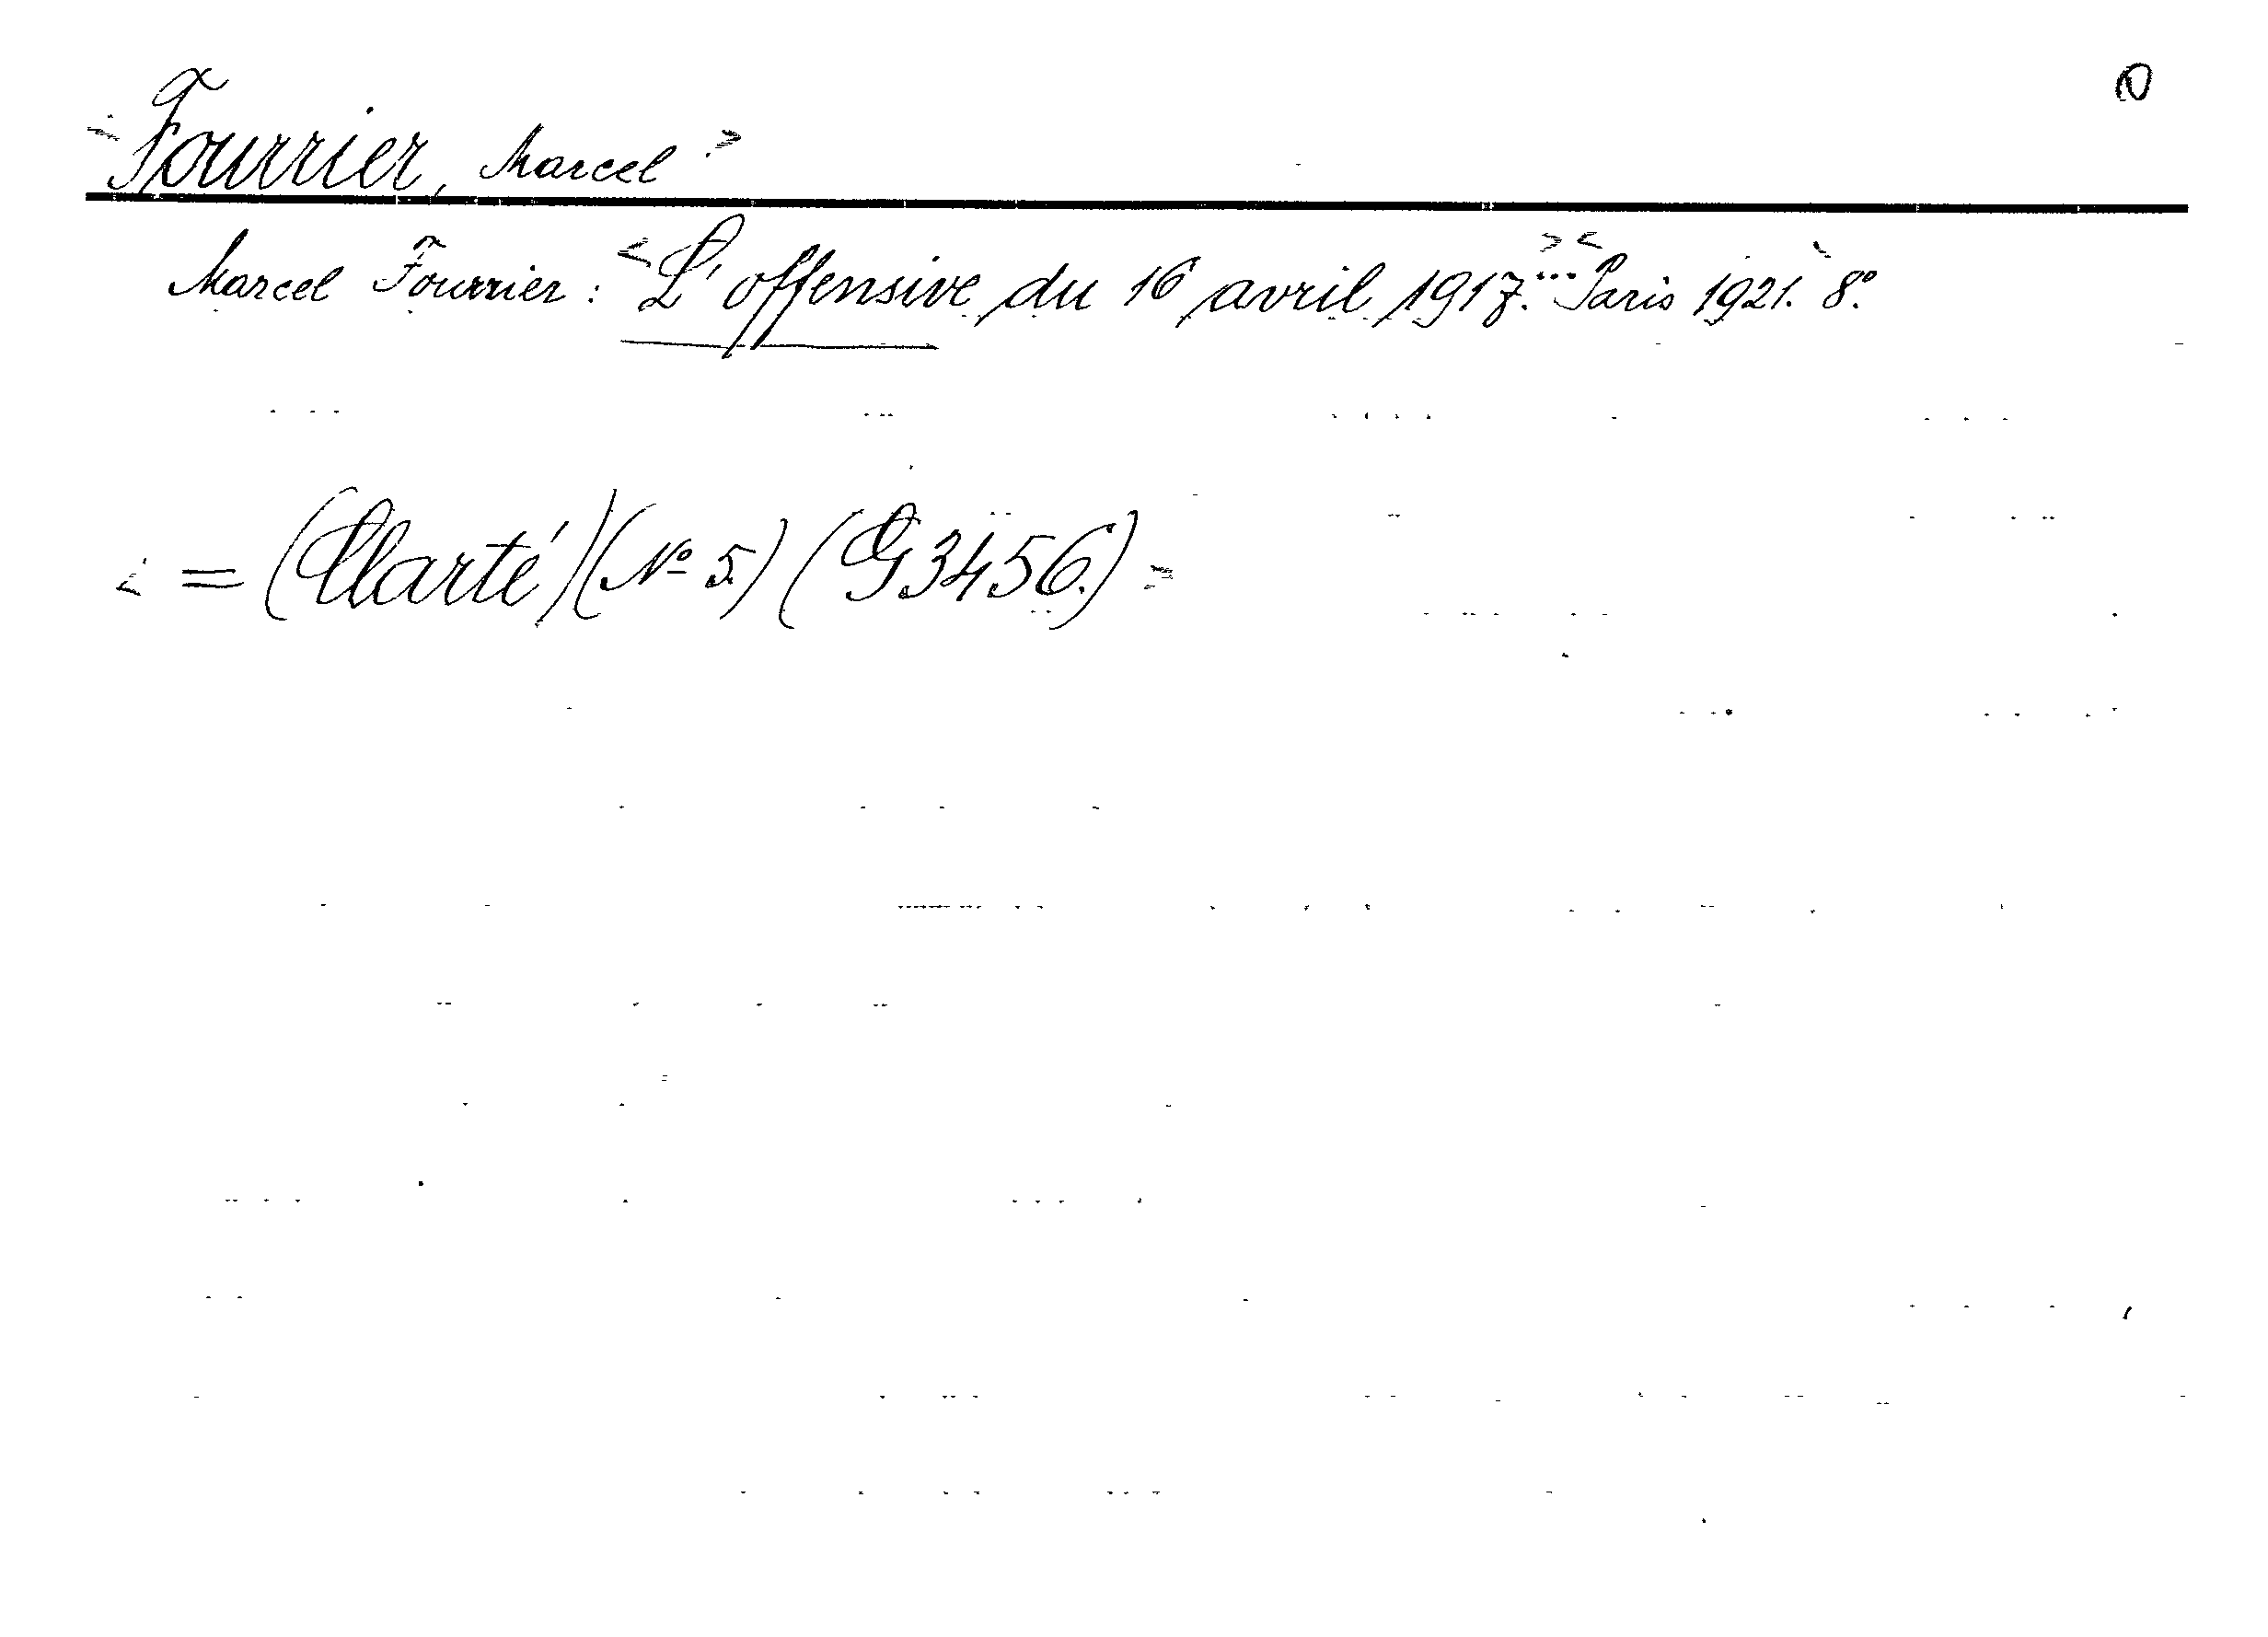 <Fourrier, Marcel>
Marcel Fourrier: <L'offensive du 16 avril 1917...> <Paris 1921. 8°.
<= (Clarté) (No 5.) (G3456.)>